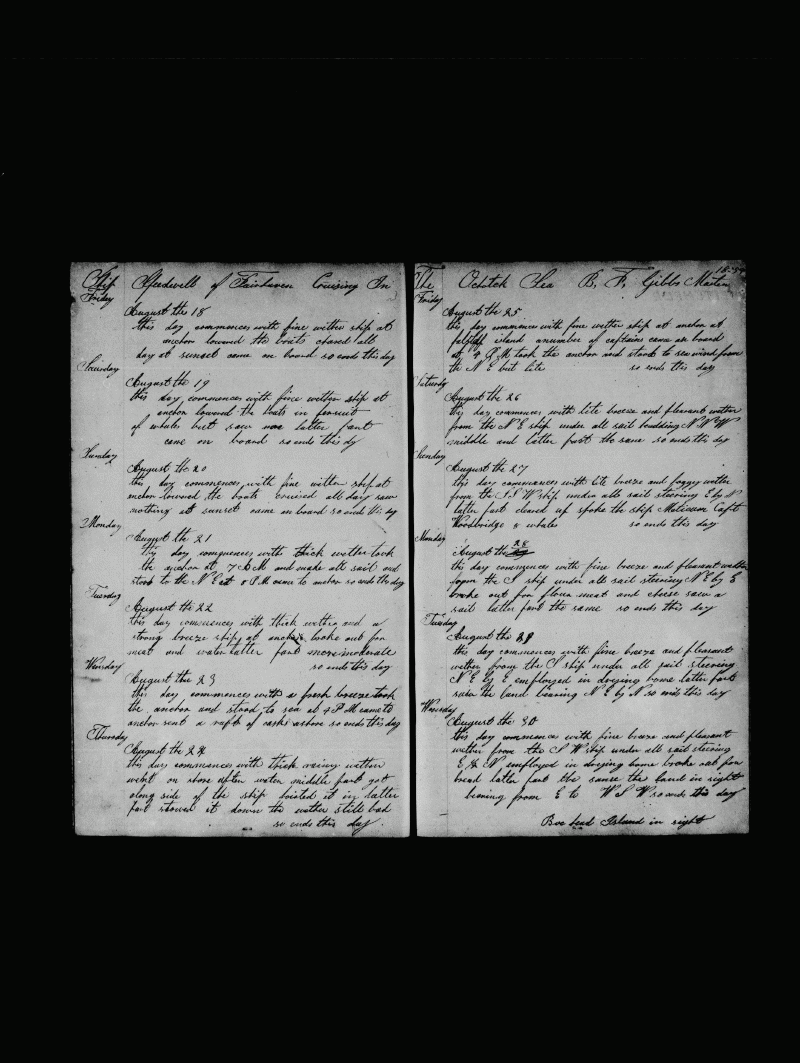 Ship Speedwell of Fairhaven Cruising In
Friday
August the 18
this day commences with fine wether ship at
anchor lowerd the boats chased all
day at sunset came on board so ends this day
Saturday
August the 19
this day commences with fine wether ship at
anchor lowerd the boats in persuit
of whales but saw non latter part
came on board so ends this dy
Sunday
August the 20
this day commences with fine wether ship at
anchor lowerd the boats cruised all day saw
nothing at sunset came on board so ends this day
Monday
August the 21
this day commences with thick wether took
the anchor at 7 A M and make all sail and
stood to the N E at 8 P.M. came to anchor so ends the day
Tuesday
August the 22
this day commences with thick wether and a
strong breeze ship at anchor broke out for
meat and water latter part more moderate
so ends this day
Wensday
August the 23
this day commences with a fresh breeze took
the anchor and stood to sea at 4 P M came to
anchor sent a raft of casks ashore so ends this day
Thursday
August the 24
this day commences with thick rainy wether
went on shore after water middle part got
along side of the ship hoisted it in latter
part stowed it down the wether still bad
so ends this day.
The Ochotck Sea B. F. Gibbs Master 1854
Friday
August the 25
this day commences with fine wether ship at anchor at
island a number of captains came on board
at 9 P M took the anchor and stood to sea wind from
the N E but lite so ends this day
Saturday
August the 26
this day commences with lite breeze and pleasant wether
from the N E ship under all sail headding N W W
middle and latter part the same so ends this day
Sunday
August the 27
this day commences with lite breeze and foggy wether
from the S S W ship under all sail steering E by N
latter part cleared up spoke the ship Capt
Woodbridge 8 whales so ends this day
Monday
August the 28
this day commences with fine breeze and pleasant wether
from the S ship under all sail steering N E by E
broke out for flour meat and cheese saw a
sail latter part the same so ends this day
Tuesday
August the 29
this day commences with fine breeze and pleasant
wether from the S ship under all sail steering
N E by E employed in drying bone latter part
saw the land bearing N E by N so ends this day
Wensday
August the 30
this day commences with fine breeze and pleasant
wether from the S W ship under all sail steering
E & N employed in drying bone broke out for
bread latter part the same the land in sight
bearing from E to W S W so ends this day
Island in sight